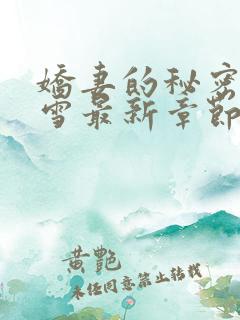 嬌妻的秘密
雪最新章節
黄艷
未經同意禁止轉載